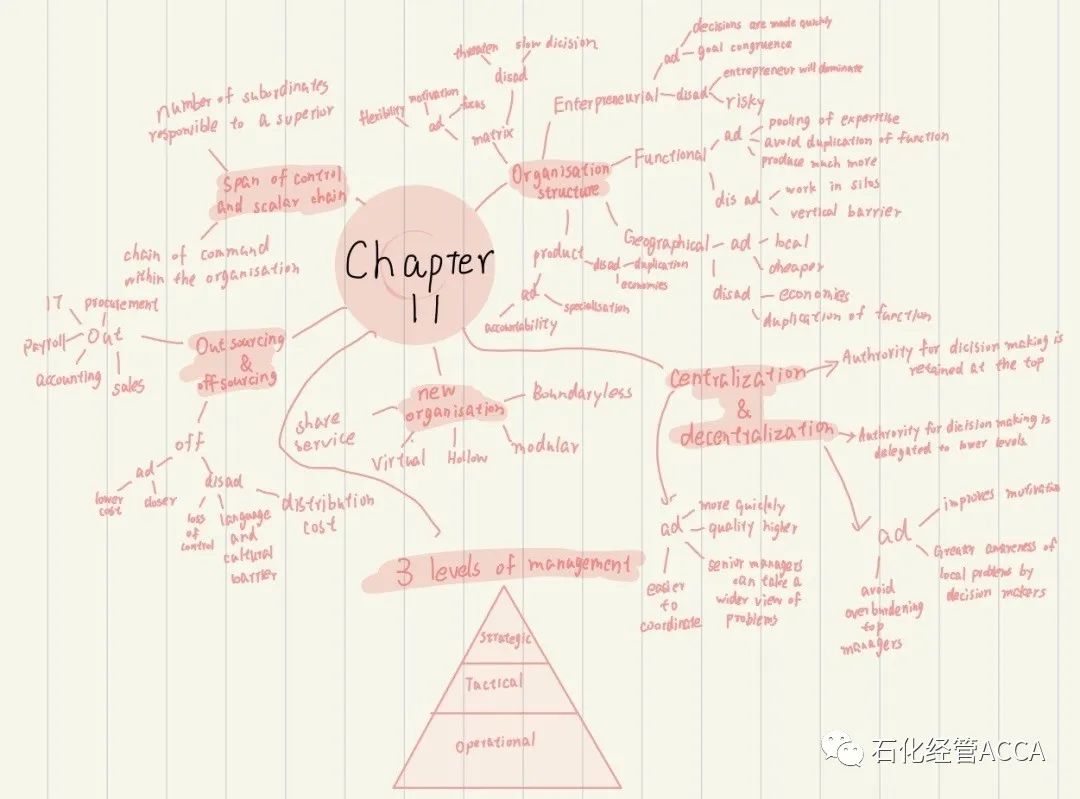 Chapter
11
span of control
and scalar chain
number of subordinates
responsible to a superior
chain of command
within the organisation
Organisation
structure
matrix
ad
flexibility
motivation
focus
disad
threaten
slow dicision
Enterpreneurial
ad
decisions are made quickly
goal congruence
disad
entrepreneur will dominate
risky
Functional
ad
pooling of expertise
avoid duplication of function
produce much more
disad
work in silos
vertical barrier
Geographical
ad
local
cheaper
disad
economies
duplication of function
product
disad
duplication
economies
ad
specialisation
accountability
Outsourcing
&
offsourcing
Out
IT
procurement
payroll
accounting
sales
off
ad
lower
cost
closer
disad
loss
of
control
language
and
cultural
barrier
distribution
cost
new
organisation
share
service
Virtual
Hollow
modular
Boundaryless
centralization
&
decentralization
Authrority for dicision making is
retained at the top
Authrority for dicision making is
delegated to lower levels
ad
more quickly
quality higher
senior managers
can take a
wider view of
problems
easier
to
coordinate
ad
improves motivation
Greater awareness of
local problems by
decision makers
avoid
overburdening
top
managers
3 levels of management
Strategic
Tactical
Operational
石化经管ACCA